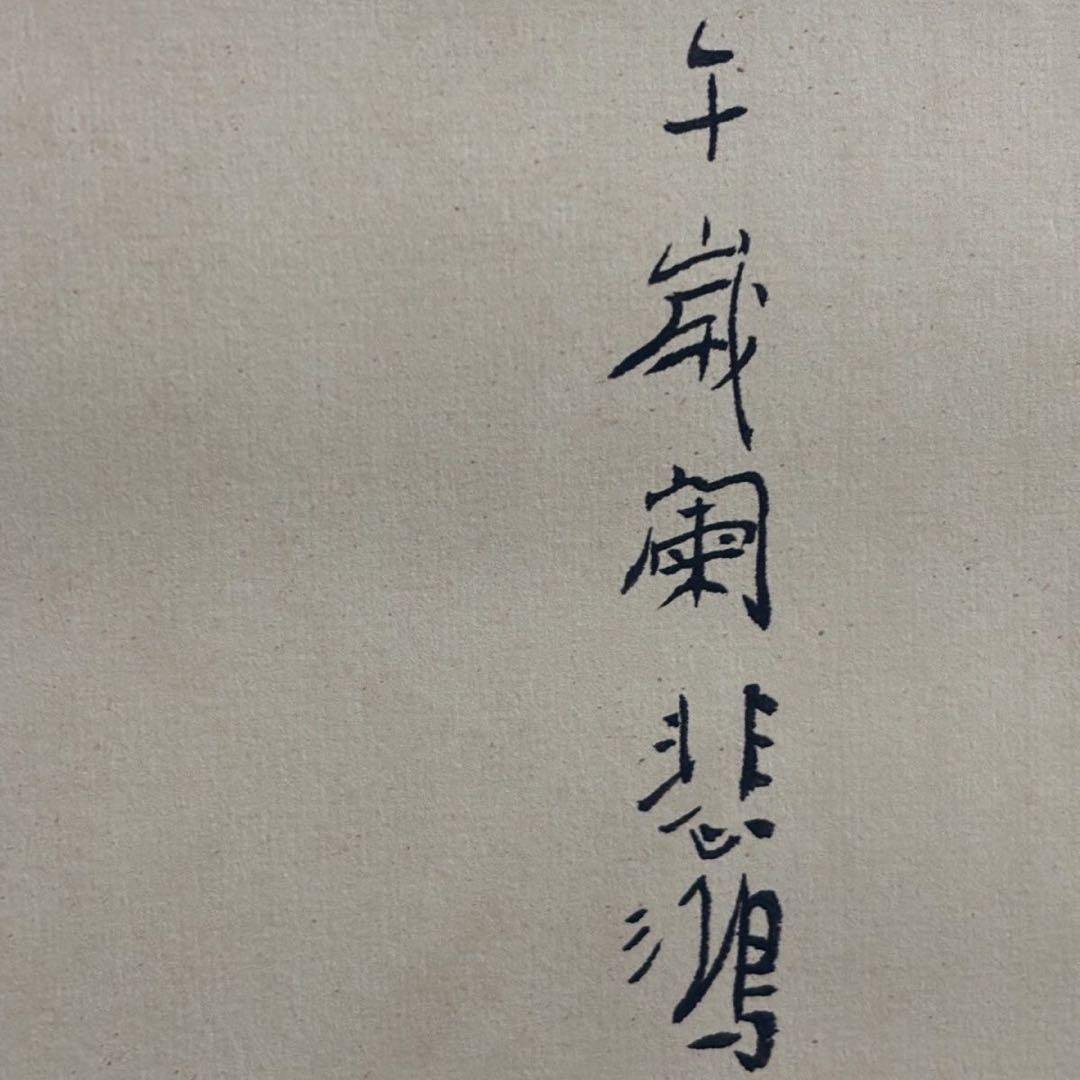 午歲闌悲鴻